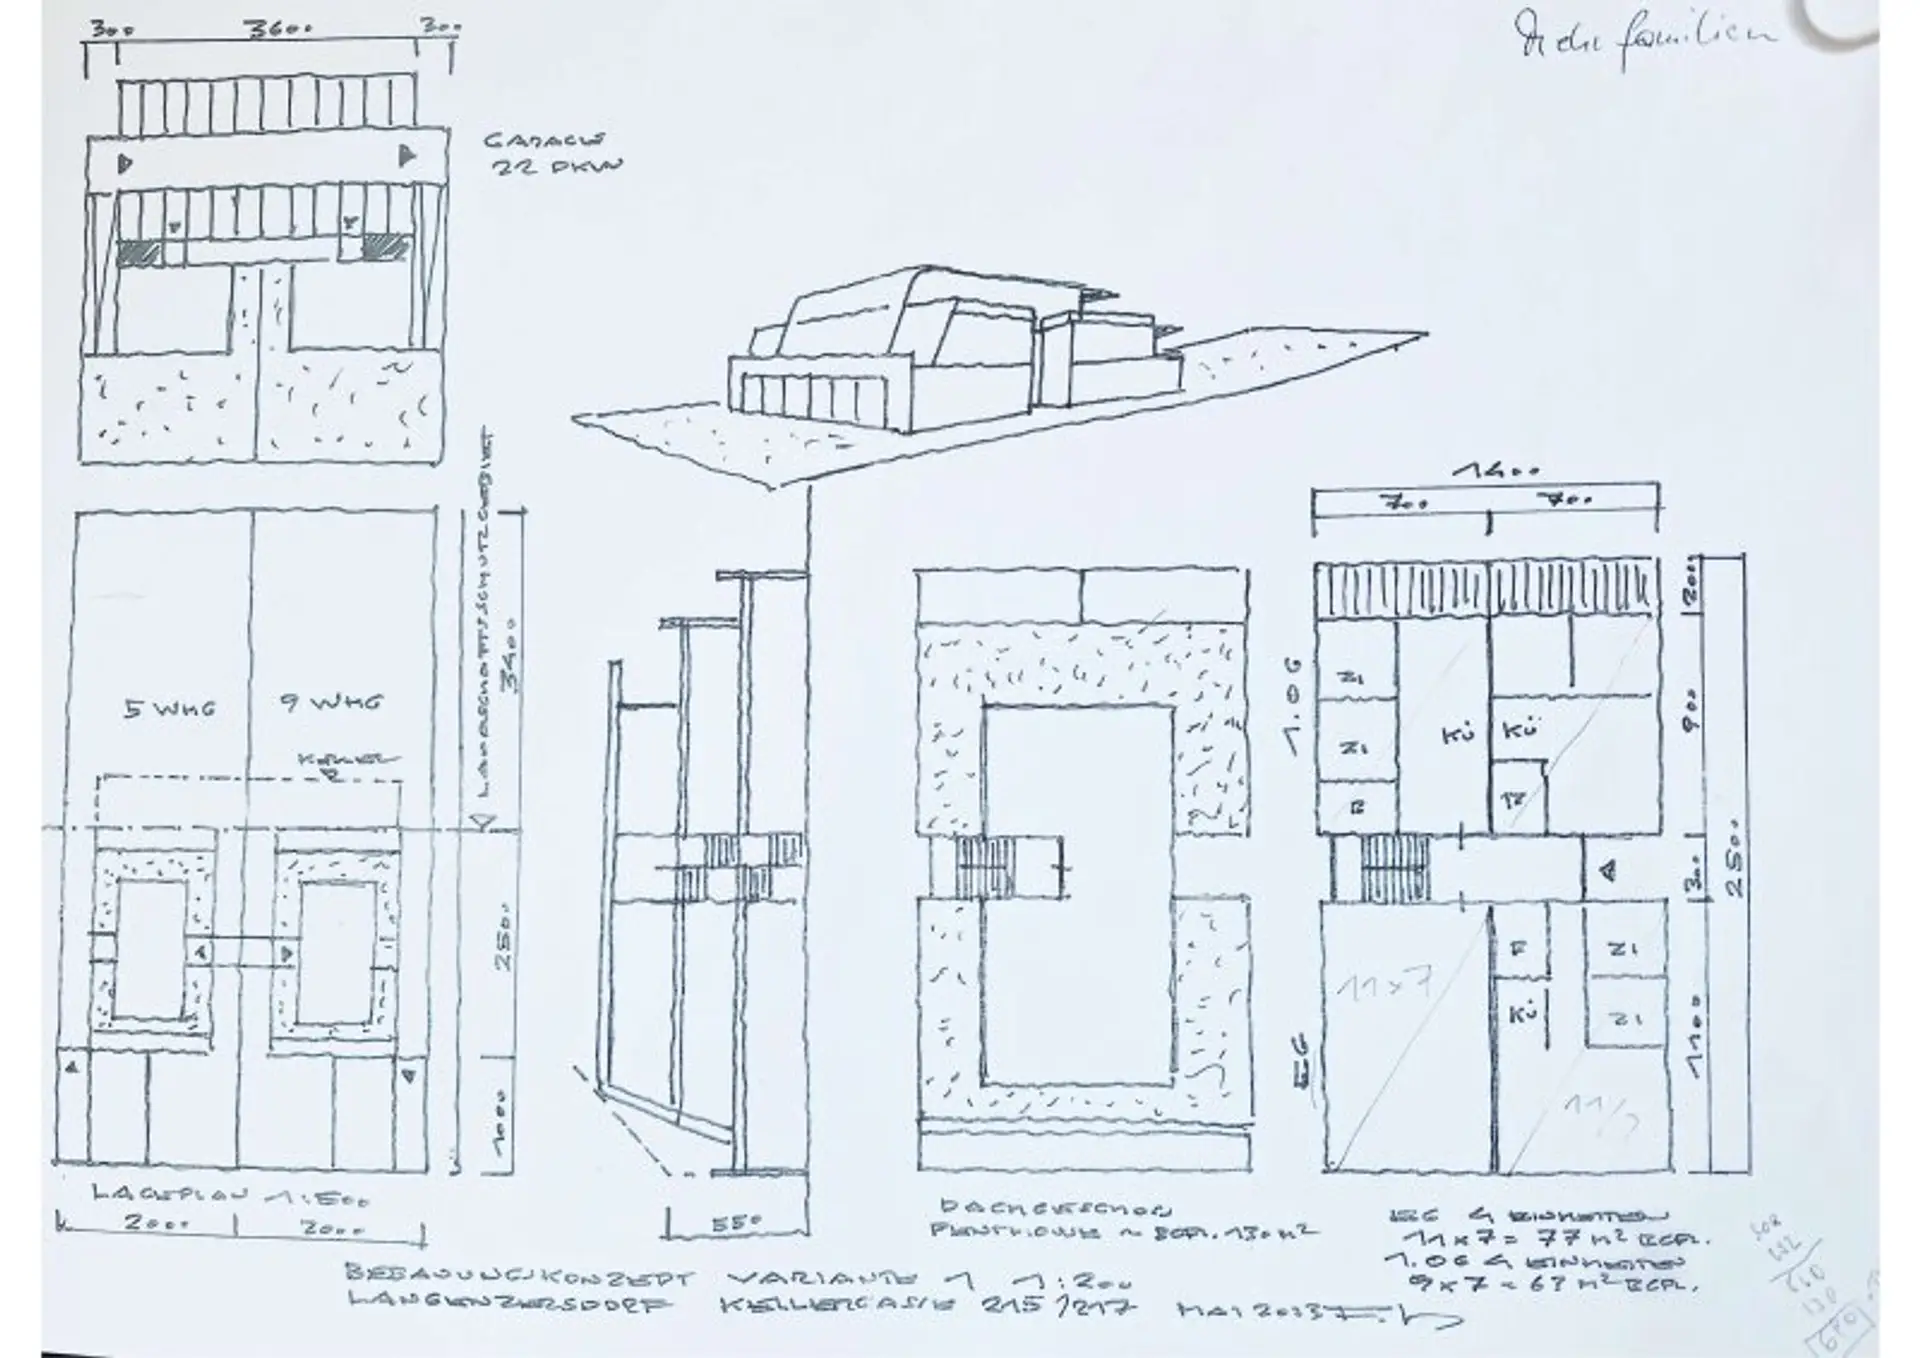 Mehrfamilien
300 3600 300
GARAGE
22 PKW
LANDSCHAFTSSCHUTZGEBIET
3400
5 WHG 9 WHG
KELLER
2500
1000
LAGEPLAN 1:500
2000 2000
550
DACHGESCHOSS
PENTHOUSE ~ BGFL. 130 m²
1400
700 700
1.OG
ZI
ZI
KÜ KÜ
200
900
300
2500
1100
EG
11x7
ZI
KÜ
ZI
EG 4 EINHEITEN
11 x 7 = 77 m² BGFL.
1.OG 4 EINHEITEN
9 x 7 = 63 m² BGFL.
BEBAUUNGSKONZEPT VARIANTE 1 1:200
LANGENZERSDORF KELLERGASSE 215/217 MAI 2013